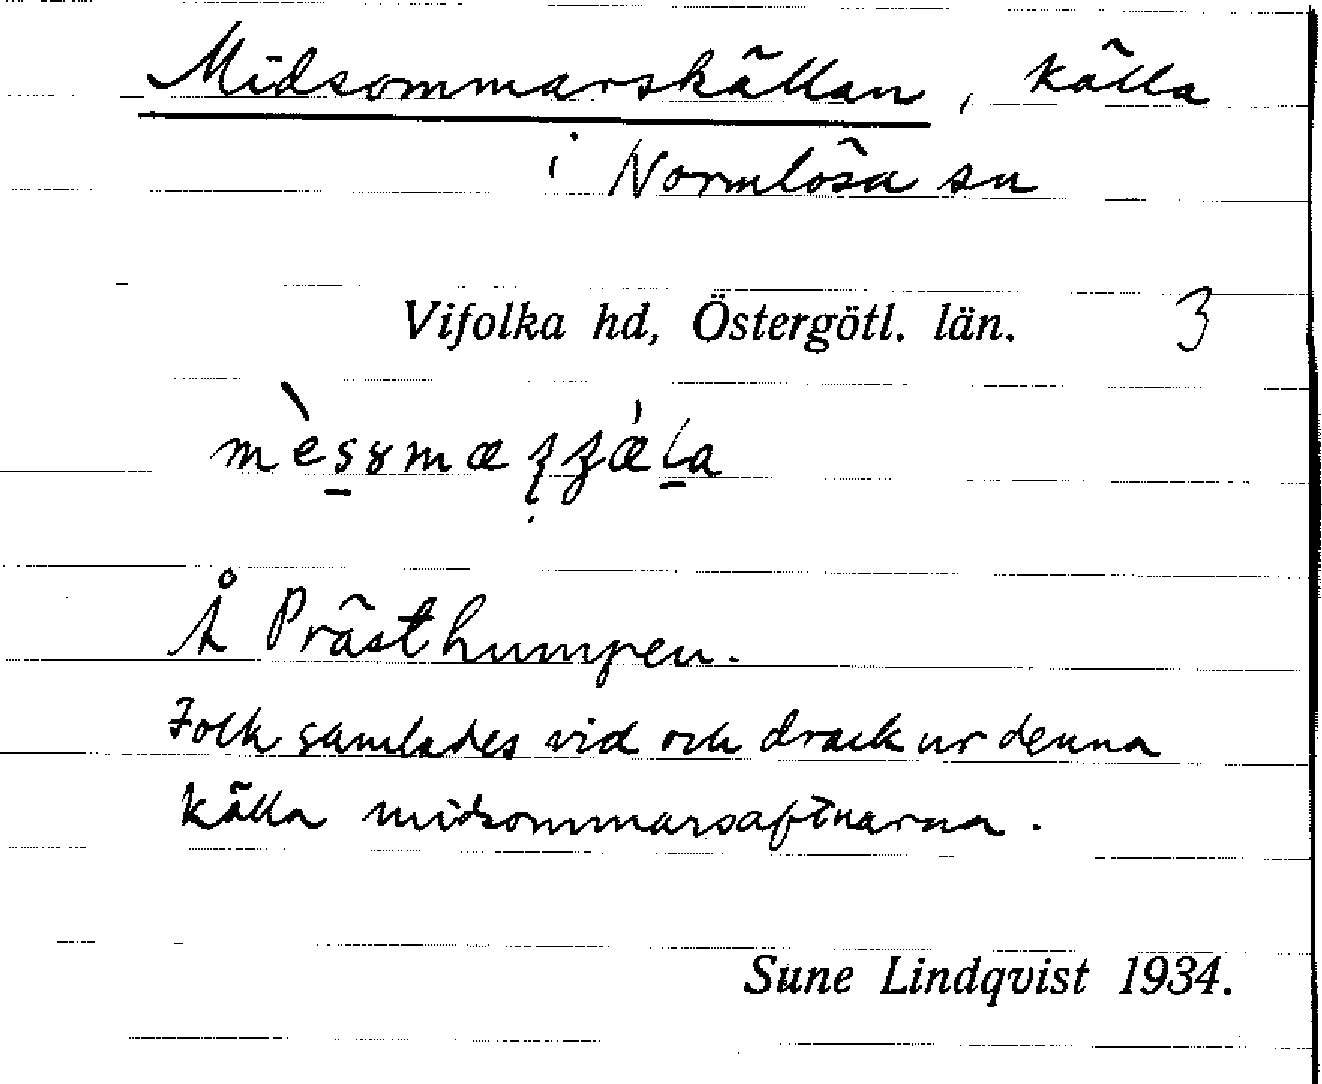 Midsommarskällan, källa
i Normlösa sn
Vifolka hd, Östergötl. län. 3
Å Prästhumpen.
Folk samlades vid och drack ur denna
källa midsommarsaftnarna.
Sune Lindqvist 1934.